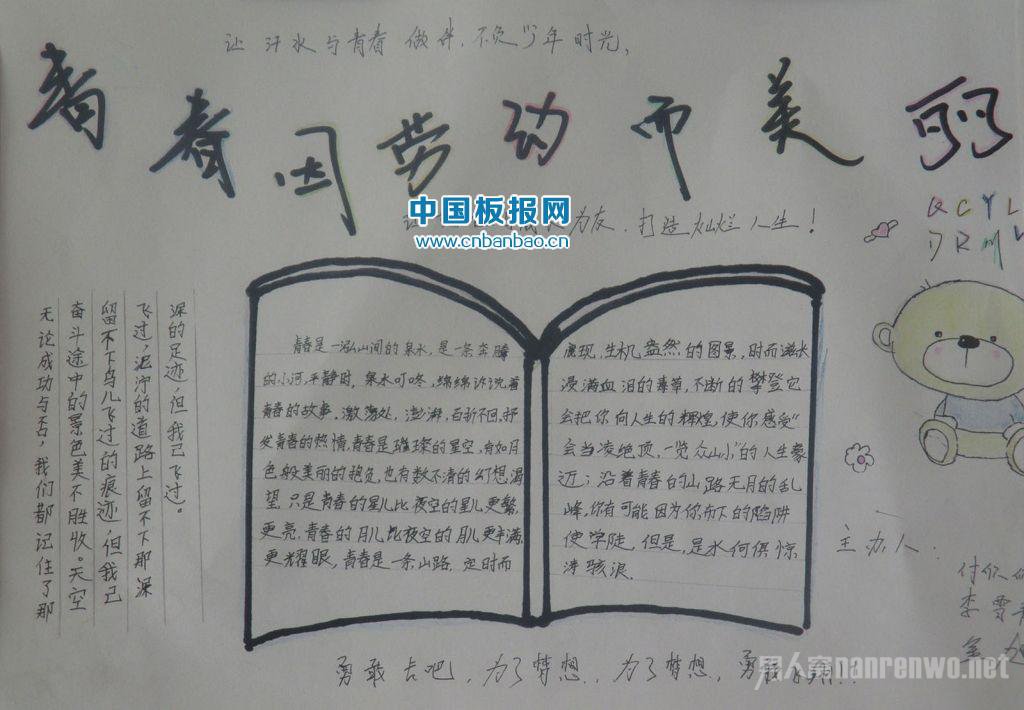 让汗水与青春做伴，不负少年时光，
青春因劳动而美丽
中国板报网
www.cnbanbao.cn
为友，打造灿烂人生！
Q C Y L
D R M
无论成功与否，我们都记住了那
奋斗途中的景色美不胜收。天空
留不下鸟儿飞过的痕迹，但我已
飞过；泥泞的道路上留不下那深
深的足迹，但我已飞过。
青春是一泓山间的泉水，是一条奔腾
的小河，平静时，泉水叮咚，绵绵诉说着
青春的故事，激荡处，澎湃，百折不回，抒
发青春的热情，青春是璀璨的星空，有如月
色般美丽的抱负，也有数不清的幻想渴
望，只是青春的星儿比夜空的星儿更繁，
更亮，青春的月儿比夜空的月儿更丰满，
更耀眼，青春是一条山路，时而
展现，生机盎然的图景，时而滋长
浸满血泪的毒草，不断的攀登它
会把你向人生的辉煌，使你感受“
会当凌绝顶，一览众山小”的人生豪
迈；沿着青春的山路无月的乱
峰，你有可能因为你布下的陷阱
使学陡，但是，是水何惧惊
涛骇浪．
主办人：
李雪
勇敢去吧，为了梦想，为了梦想，勇敢
男人窝nanrenwo.net